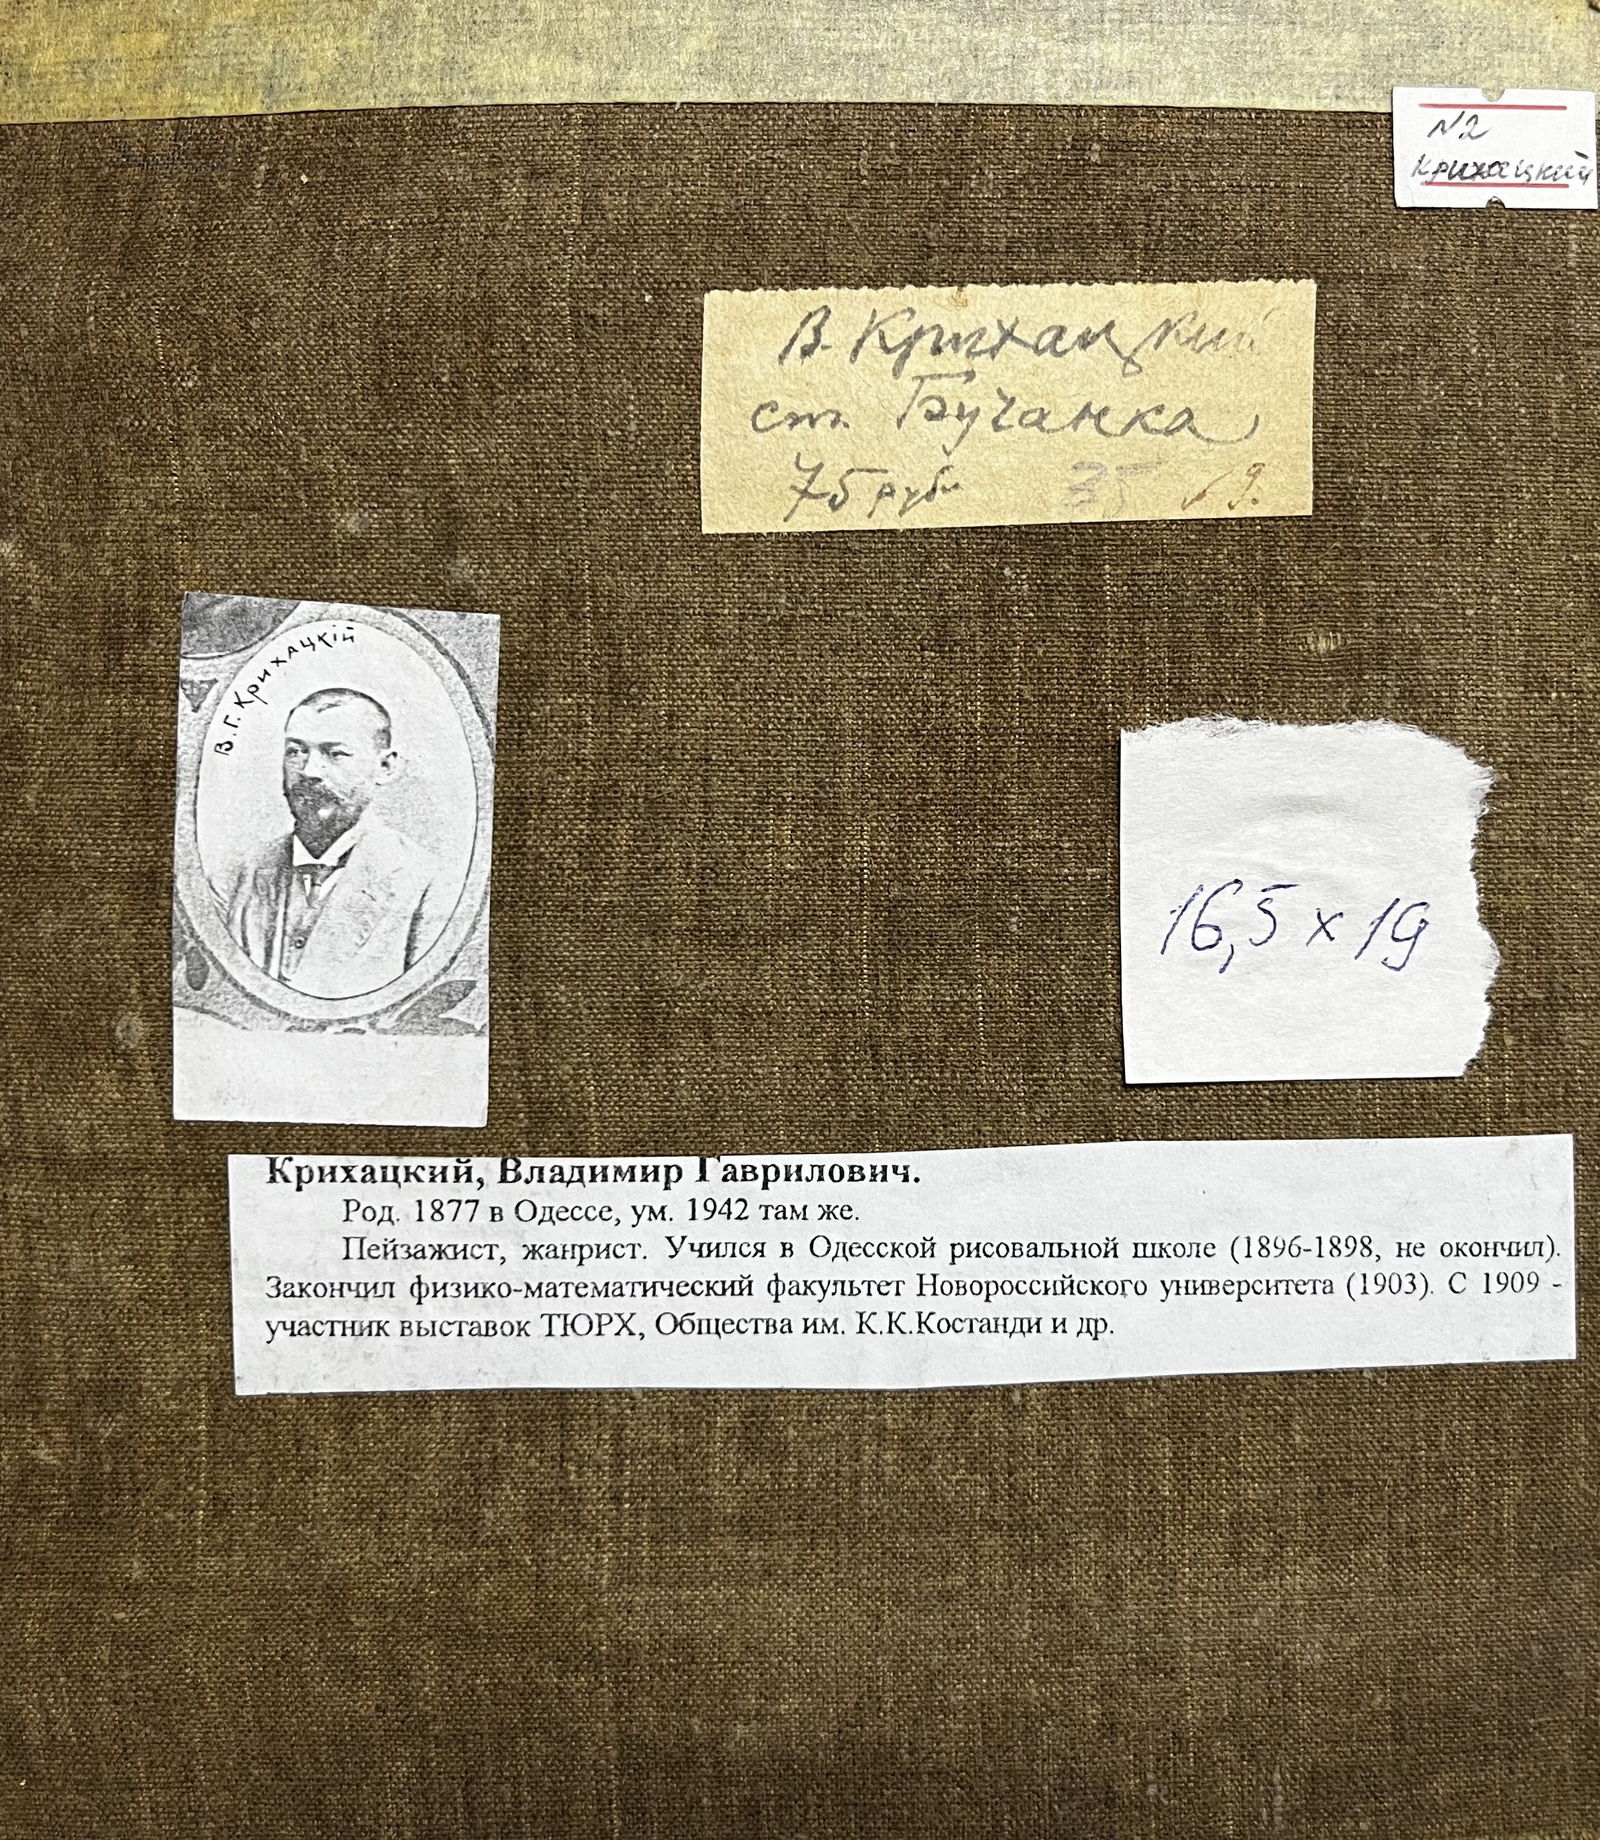 N2
Крихацкий
В. Крихацкий
ст. Бучанка
75 руб. 35 9.
В. Г. Крихацкій
16,5 x 19
Крихацкий, Владимир Гаврилович.
Род. 1877 в Одессе, ум. 1942 там же.
Пейзажист, жанрист. Учился в Одесской рисовальной школе (1896-1898, не окончил).
Закончил физико-математический факультет Новороссийского университета (1903). С 1909 -
участник выставок ТЮРХ, Общества им. К.К.Костанди и др.